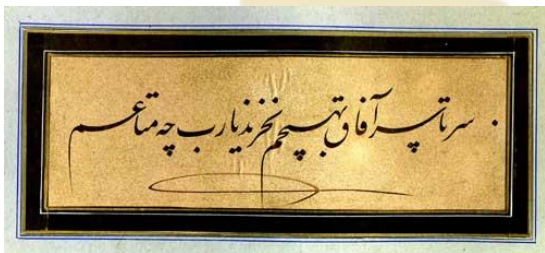 سرتاسر آفاق بهیچم نخرند یارب چه متاعم